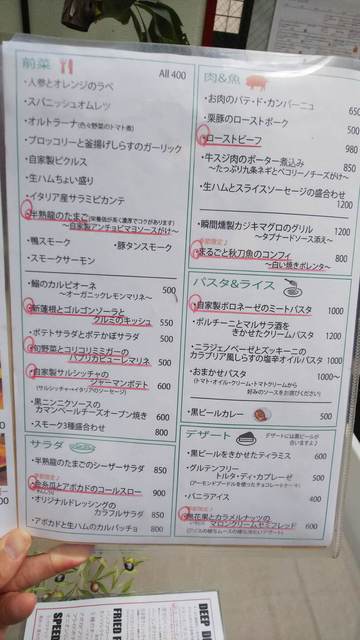 前菜
All 400
・人参とオレンジのラペ
・スパニッシュオムレツ
・オルトラーナ(色々野菜のトマト煮)
・ブロッコリーと釜揚げしらすのガーリック
・自家製ピクルス
・生ハムちょい盛り
・イタリア産サラミピカンテ
・半熟龍のたまご(栄養価が高く濃厚でコクがあります)
～自家製アンチョビマヨソースがけ～
・鴨スモーク ・豚タンスモーク
・スモークサーモン
・鰯のカルピオーネ 500
～オーガニックレモンマリネ～
・新蓮根とゴルゴンゾーラと
クルミのキッシュ 550
・ポテトサラダとポテかぼサラダ 500
・旬野菜とコリコリミミガーの
パプリカビューレマリネ 500
・自家製サルシッチャの
ジャーマンポテト 600
(サルシッチャ→イタリアのソーセージ)
・黒ニンニクソースの
カマンベールチーズオーブン焼き 600
・スモーク3種盛合わせ 800
サラダ
・半熟龍のたまごのシーザーサラダ 850
・金糸瓜とアボカドのコールスロー 900
・オリジナルドレッシングの
カラフルサラダ 850
・アボカドと生ハムのカルパッチョ 800
肉&魚
・お肉のパテ・ド・カンパーニュ 650
・栗豚のローストポーク 500
・ローストビーフ 980
・牛スジ肉のポーター煮込み 850
～たっぷり九条ネギとペコリーノチーズがけ～
・生ハムとスライスソーセージの盛合わせ
1200
・瞬間燻製カジキマグロのグリル 1200
～タプナードソース添え～
・まるごと秋刀魚のコンフィ 850
～白い焼きポレンタ～
パスタ&ライス
・自家製ボロネーゼのミートパスタ 1000
・ポルチーニとマルサラ酒を
きかせたクリームパスタ 1000
・ニラジェノベーゼとズッキーニの
カラブリア風しらすの塩辛オイルパスタ 1000
・おまかせパスタ 1000～
(トマト・オイル・クリーム・トマトクリームから
好みのソースをお選びください)
・黒ビールカレー 500
デザート
デザートには黒ビールが
合いますよ♪
・黒ビールをきかせたティラミス 600
・グルテンフリー
トルタ・ディ・カプレーゼ 500
(アーモンドプードルを使ったチョコレートケーキ)
・バニラアイス 400
・無花果とカラメルナッツの
マロンクリームセミフレッド 600